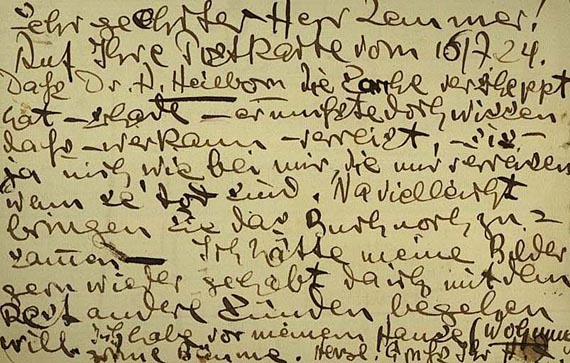 Sehr geehrter Herr Zammer!
Auf Ihre Postkarte vom 16/7 24.
Dass Dr. A. Heilborn die Sache verschleppt
hat – schade – er musste doch wissen
dass – wer kann – verreist, –
ja nich wie bei mir, die nur verreisen
wenn se' tot sind. Na vielleicht
bringen Sie das Buch noch zu-
sammen – Ich hätte meine Bilder
gern wieder gehabt da ich mit dem
Rest andere Sünden begehen
will. Ich habe vor meinem Hause (Wohnung
Bäume. Herzl